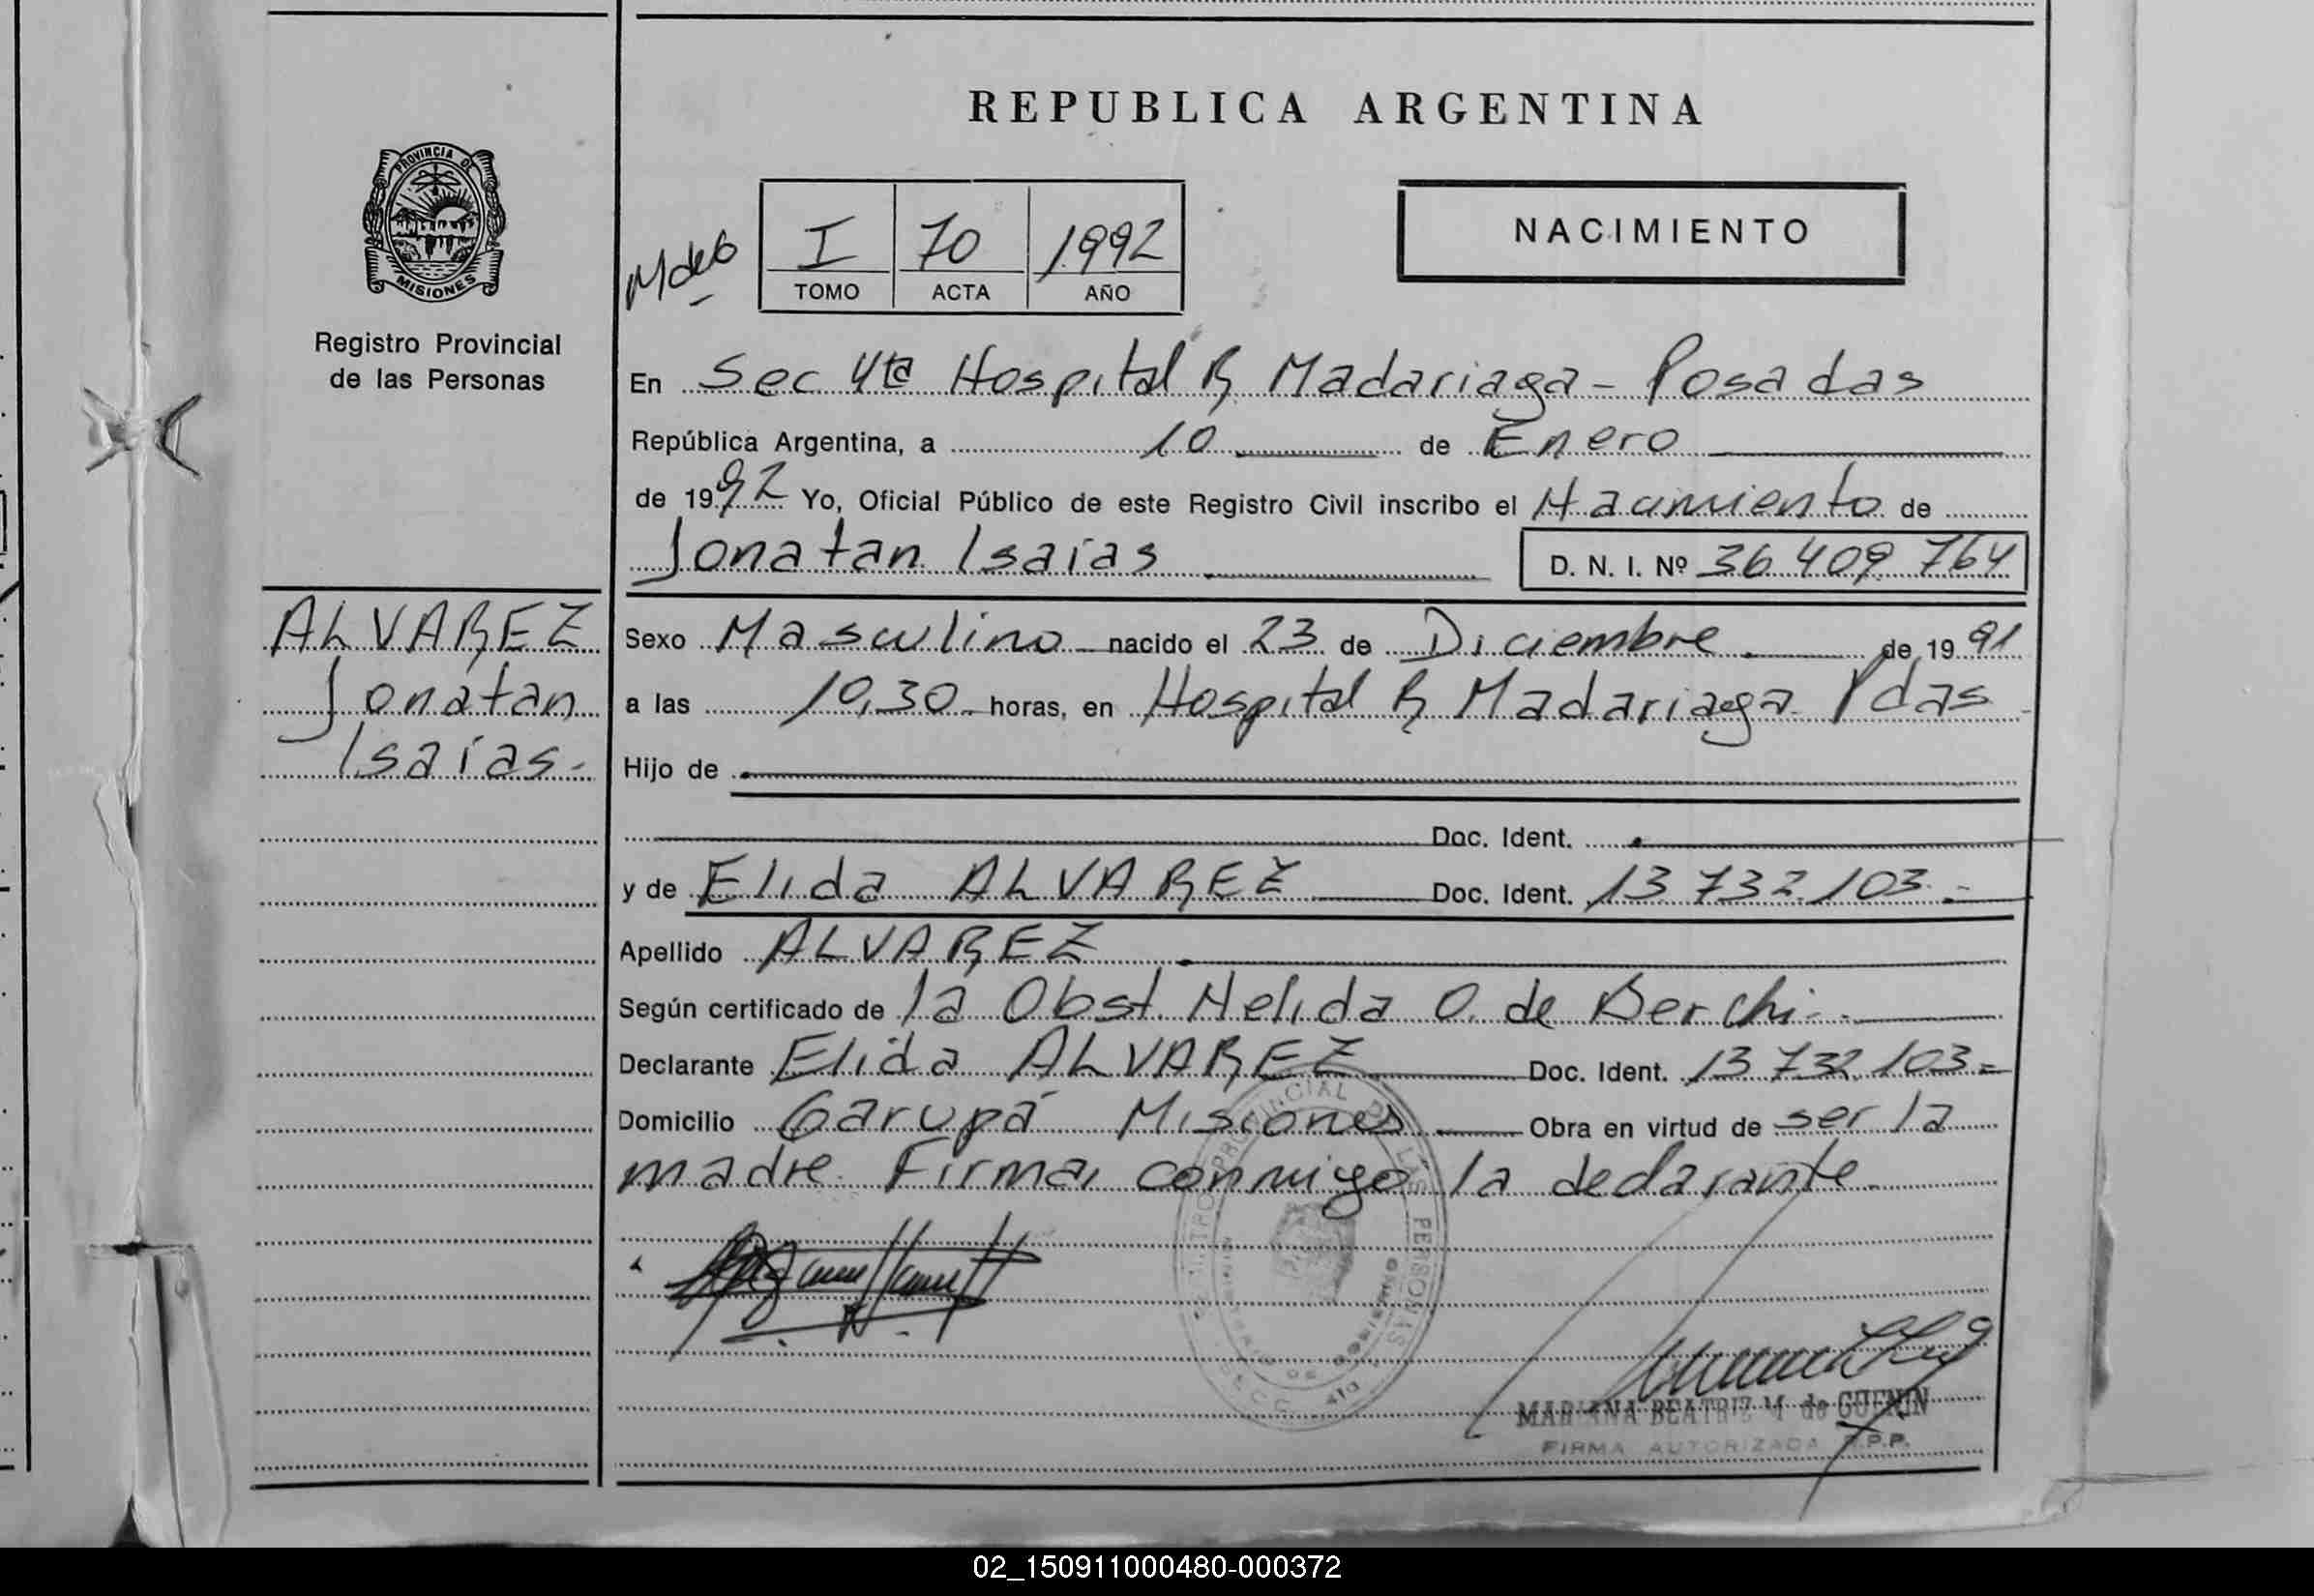 REPUBLICA ARGENTINA
NACIMIENTO
PROVINCIA DE
MISIONES
Registro Provincial
de las Personas
I 70 1992
TOMO ACTA AÑO
En Sec 4ta Hospital R Madariaga - Posadas
República Argentina, a 10 de Enero
de 1992 Yo, Oficial Público de este Registro Civil inscribo el Nacimiento de
Jonatan Isaias D. N. I. Nº 36.409.764
ALVAREZ
Jonatan
Isaias.-
Sexo Masculino nacido el 23 de Diciembre de 1991
a las 10,30 horas, en Hospital R Madariaga Pdas
Hijo de
Doc. Ident.
y de Elida ALVAREZ Doc. Ident. 13.732.103.-
Apellido ALVAREZ
Según certificado de la Obst. Nelida O. de Berchi.-
Declarante Elida ALVAREZ Doc. Ident. 13.732.103=
Domicilio Garupá Misiones Obra en virtud de ser la
madre. Firma, conmigo la declarante.
MARIANA BEATRIZ M de GUENIN
FIRMA AUTORIZADA R.P.P.
02_150911000480-000372